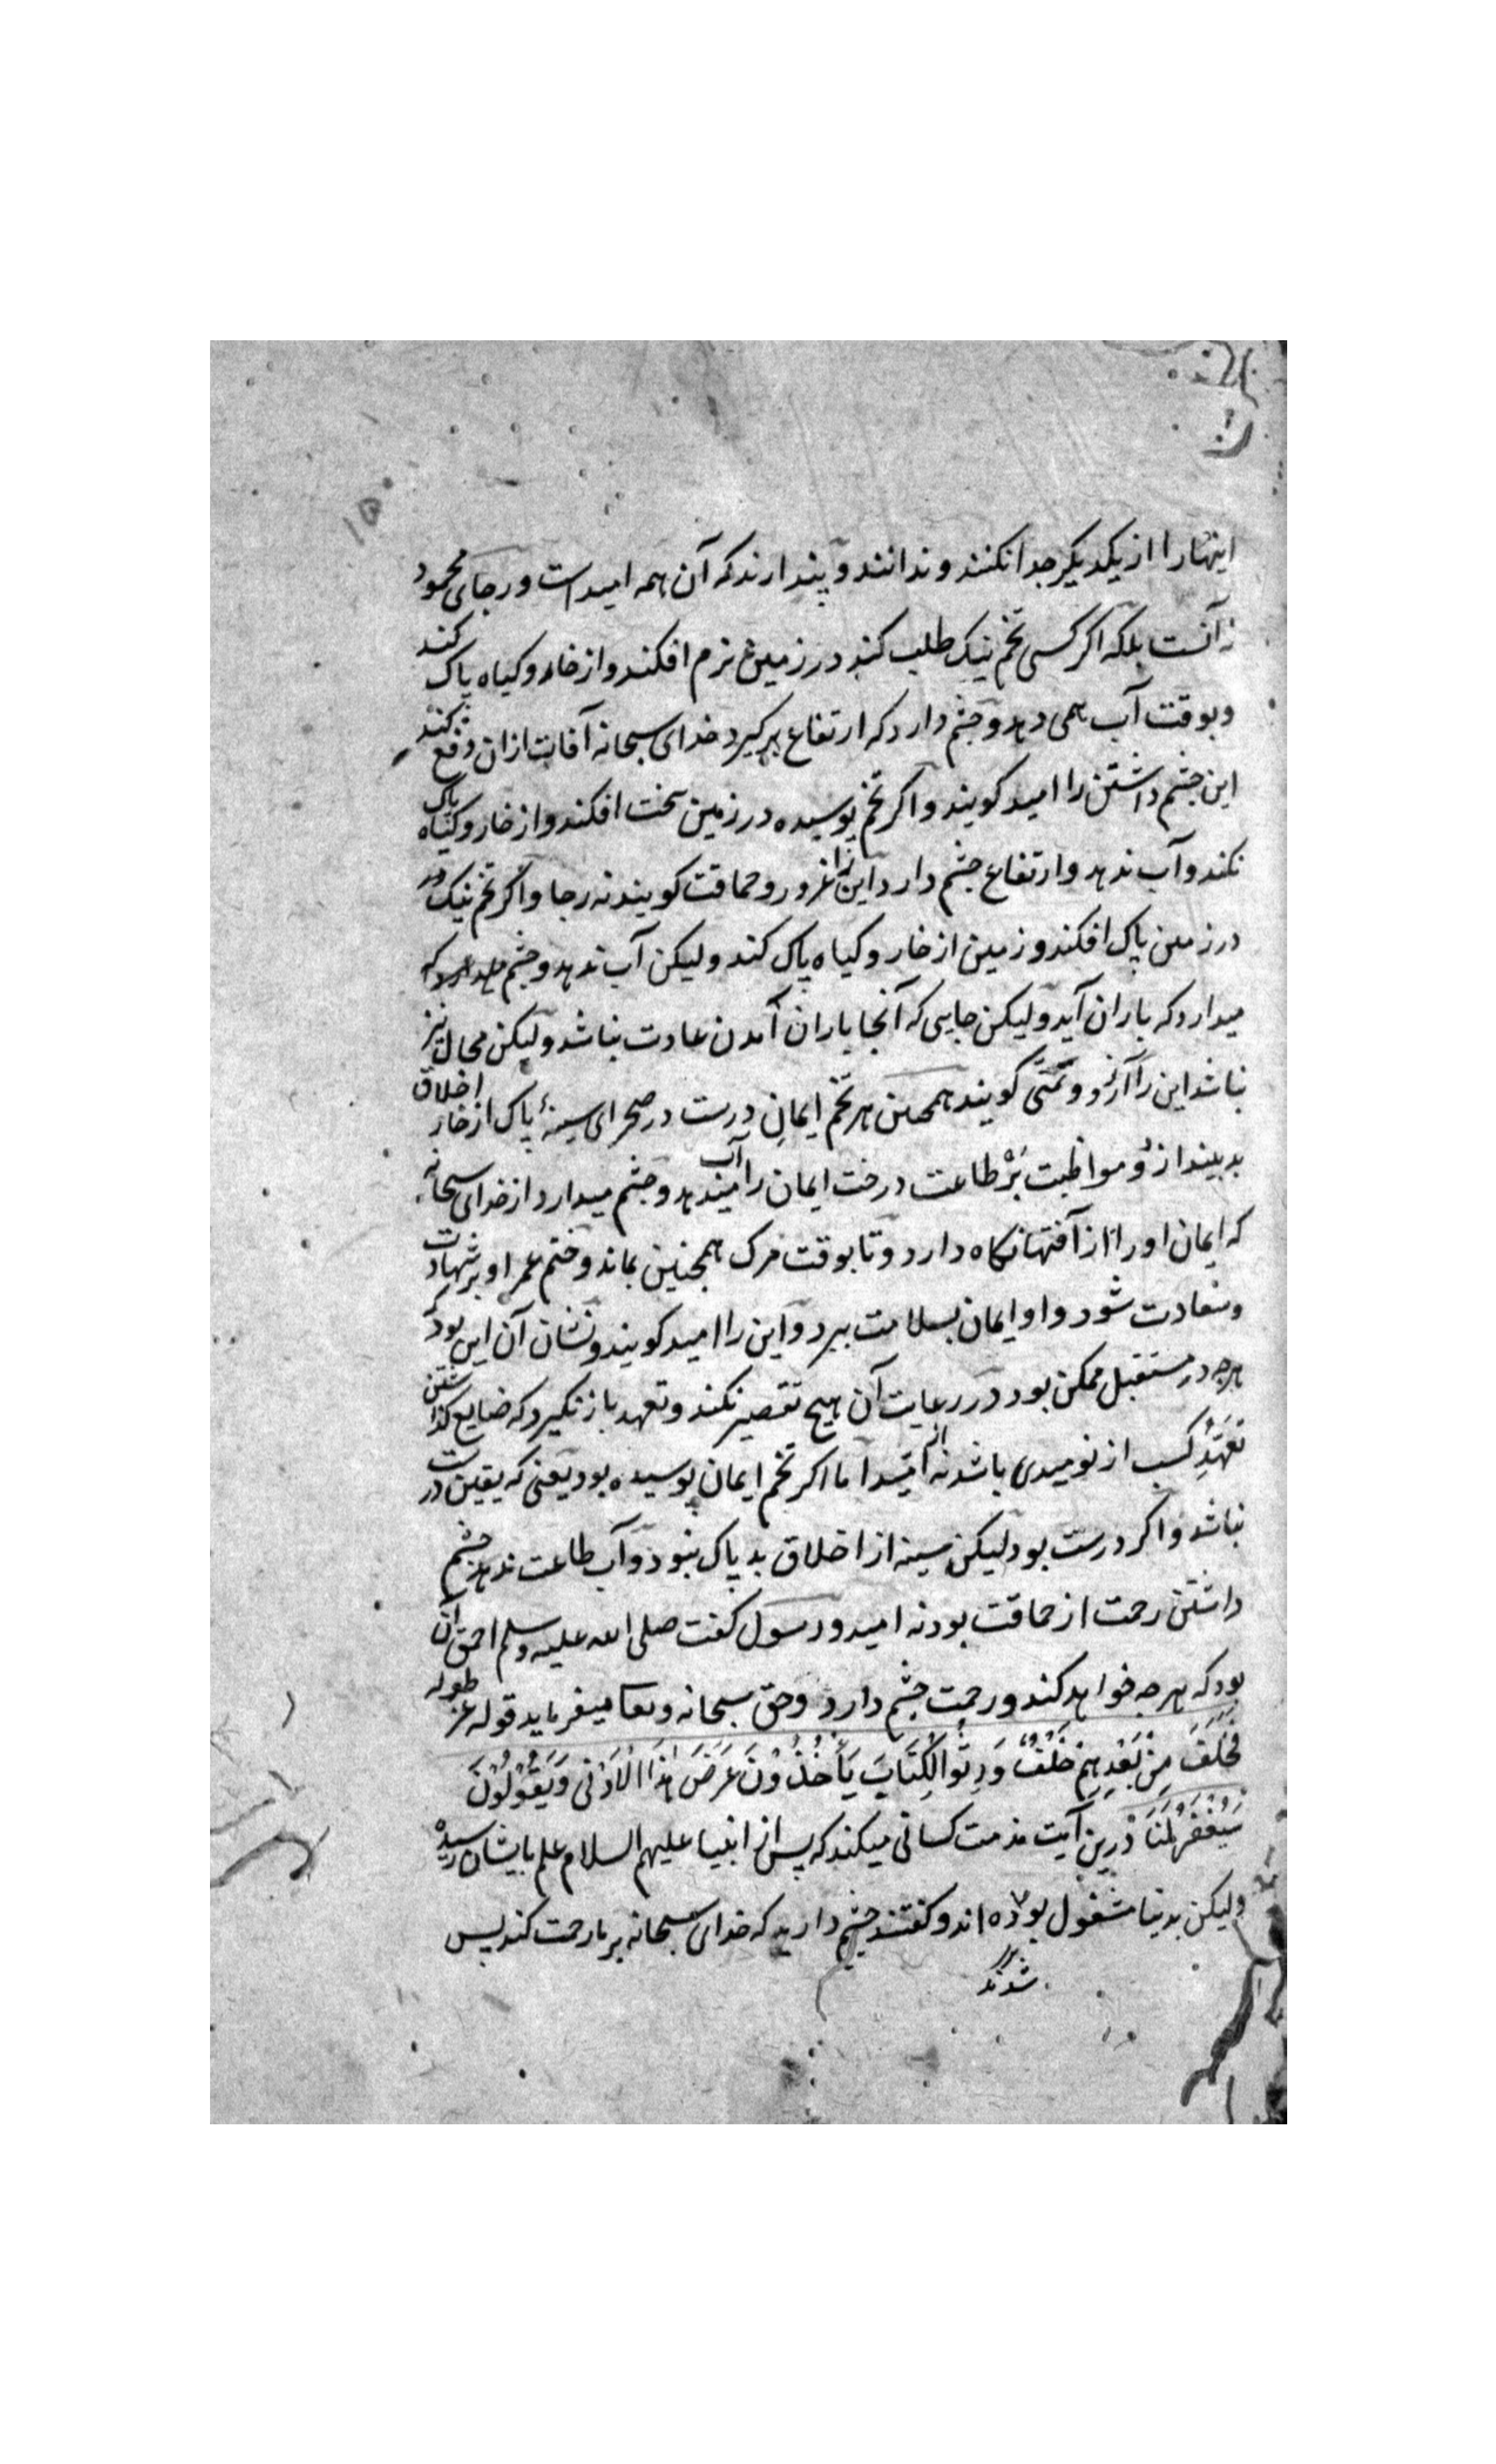 اینها را از یکدیگر جدا نکنند و ندانند و پندارند که آن همه امیدست و رجای محمود
نه آنست بلکه اکر کسی تخم نیک طلب کند در زمین نرم افکند و از خار و کیاه پاک کند
و بوقت آب همی دهد و چشم دارد که ارتفاع برکیرد خدای سبحانه آفات ازان دفع کند
این چشم داشتن را امید کویند و اکر تخم پوسیده در زمین سخت افکند و از خار و کیاه پاک
نکند و آب ندهد و ارتفاع چشم دارد این را غرور و حماقت کویند نه رجا و اکر تخم نیک در
در زمین پاک افکند و زمین از خار و کیاه پاک کند ولیکن آب ندهد و چشم
میدارد که باران آید ولیکن جایی که آنجا باران آمدن عادت نباشد ولیکن محال نیز
نباشد این را آرزو و تمنّی کویند همچنین هر تخم ایمان درست در صحرای سینهٔ پاک از خار اخلاق
بد بیندازد و مواظبت بر طاعت درخت ایمان را آب میدهد و چشم میدارد از خدای سبحانه
که ایمان او را از آفتها نکاه دارد و تا بوقت مرک همچنین بماند و ختم عمر او بر شهادت
و سعادت شود و او ایمان بسلامت ببرد و این را امید کویند و نشان آن این بود که
هرچه در مستقبل ممکن بود در رعایت آن هیچ تقصیر نکند و تعهد باز نکیرد که ضایع کذاشتن
تعهّد کسب از نومیدی باشد نه از امید اما اکر تخم ایمان پوسیده بود یعنی که یقین درست
نباشد و اکر درست بود لیکن سینه از اخلاق بد پاک نبود و آب طاعت ندهد چشم
داشتن رحمت از حماقت بود نه امید و رسول کفت صلی الله علیه وسلم احمق آن
بود که هرچه خواهد کند و رحمت چشم دارد و حق سبحانه و تعا میفرماید قوله عز طوله
فَخَلَفَ مِنْ بَعْدِهِمْ خَلْفٌ وَرِثُوا الْكِتَابَ يَأْخُذُونَ عَرَضَ هٰذَا الْأَدْنٰى وَيَقُولُونَ
سَيُغْفَرُ لَنَا درین آیت مذمت کسانی میکند که پس از انبیا علیهم السلام علم بایشان رسیده
ولیکن بدنیا مشغول بوده اند و کفتند چشم داریم که خدای سبحانه بر ما رحمت کند پس